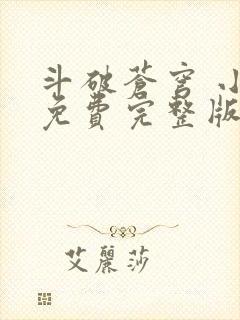 斗破蒼穹 小
免費完整版
艾麗莎